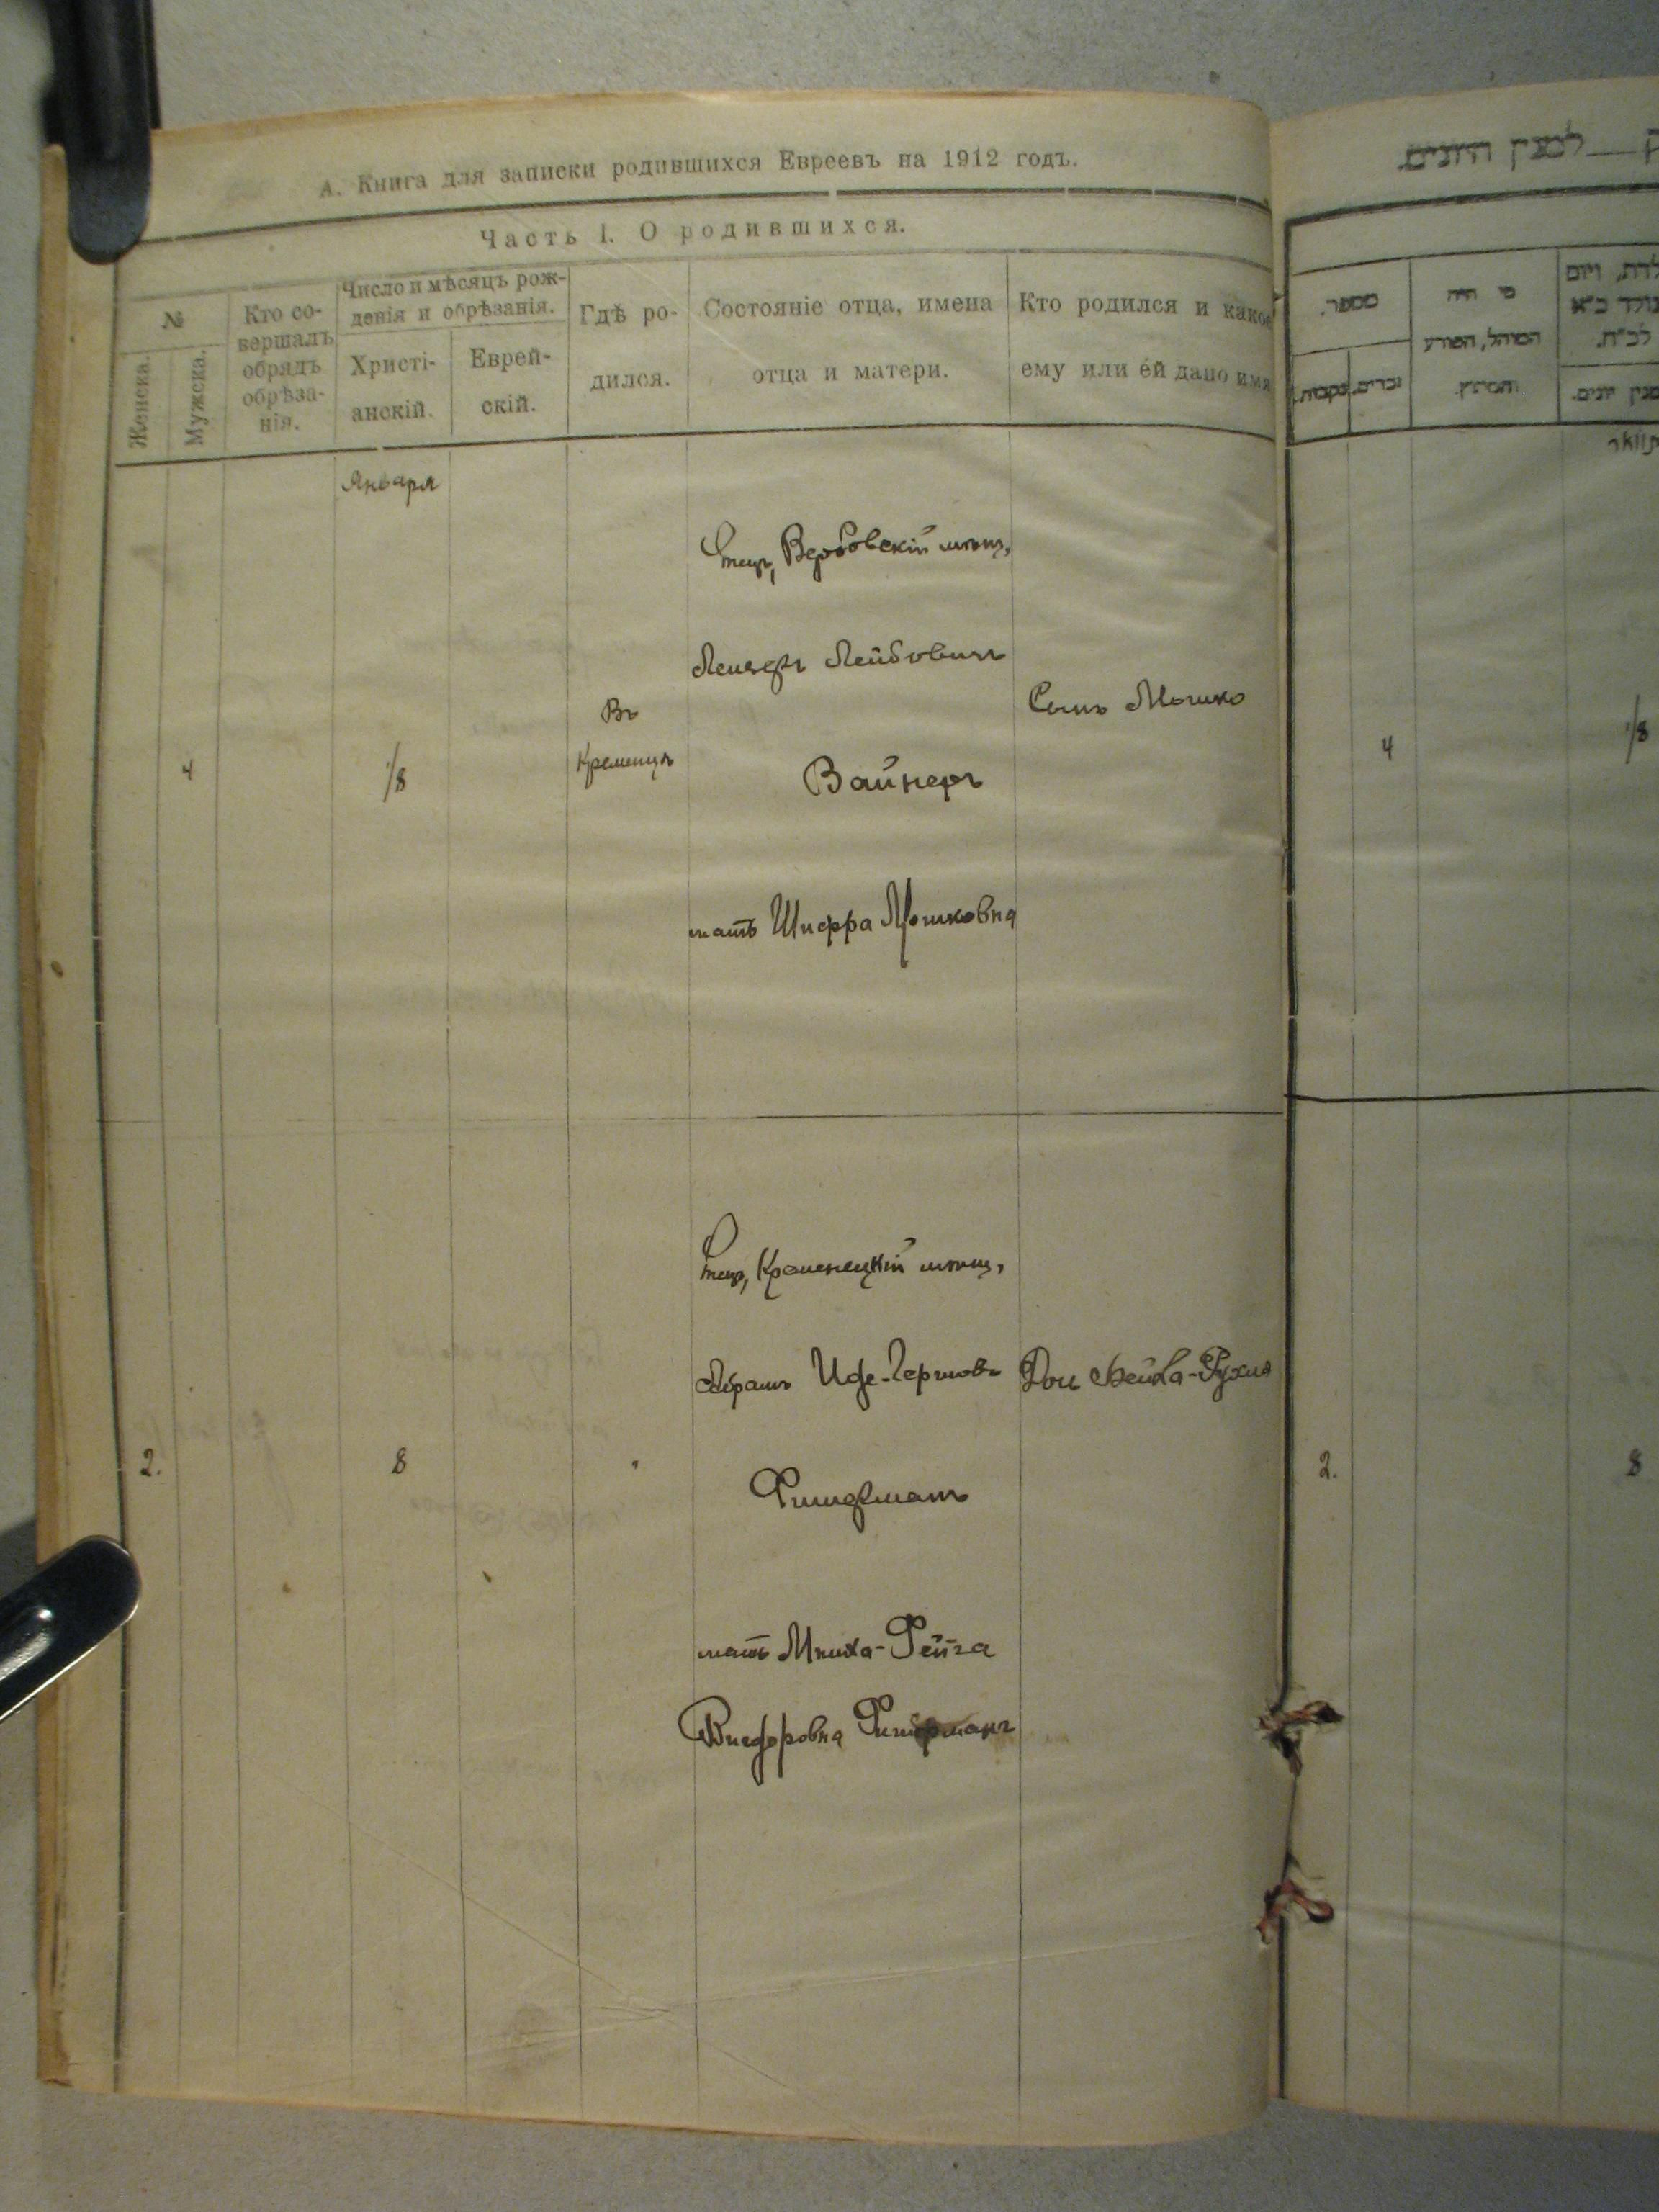 А. Книга для записки родившихся Евреевъ на 1912 годъ.
Часть I. О родившихся.
№
Женска.
Мужска.
Кто со-
вершалъ
обрядъ
обрѣза-
нія.
Число и мѣсяцъ рож-
денія и обрѣзанія.
Христі-
анскій.
Еврей-
скій.
Гдѣ ро-
дился.
Состояніе отца, имена
отца и матери.
Кто родился и какое
ему или ей дано имя
Января
4
1/8
Въ
Кременцѣ
Отецъ, Вербовскій мѣщ,
Лейзеръ Лейбовичъ
Вайнеръ
мать Шифра Мошковна
Сынъ Мошко
2.
8
"
Отецъ, Кременецкій мѣщ,
Абрамъ Гершовъ
Фишерманъ
мать Фейга
Фишерманъ
Дочь Рухля
למנין היונים.
מספר.
נקבות.
זכרים.
מי היה
המוהל, הפורע
והמוצץ.
4
1/8
2.
8